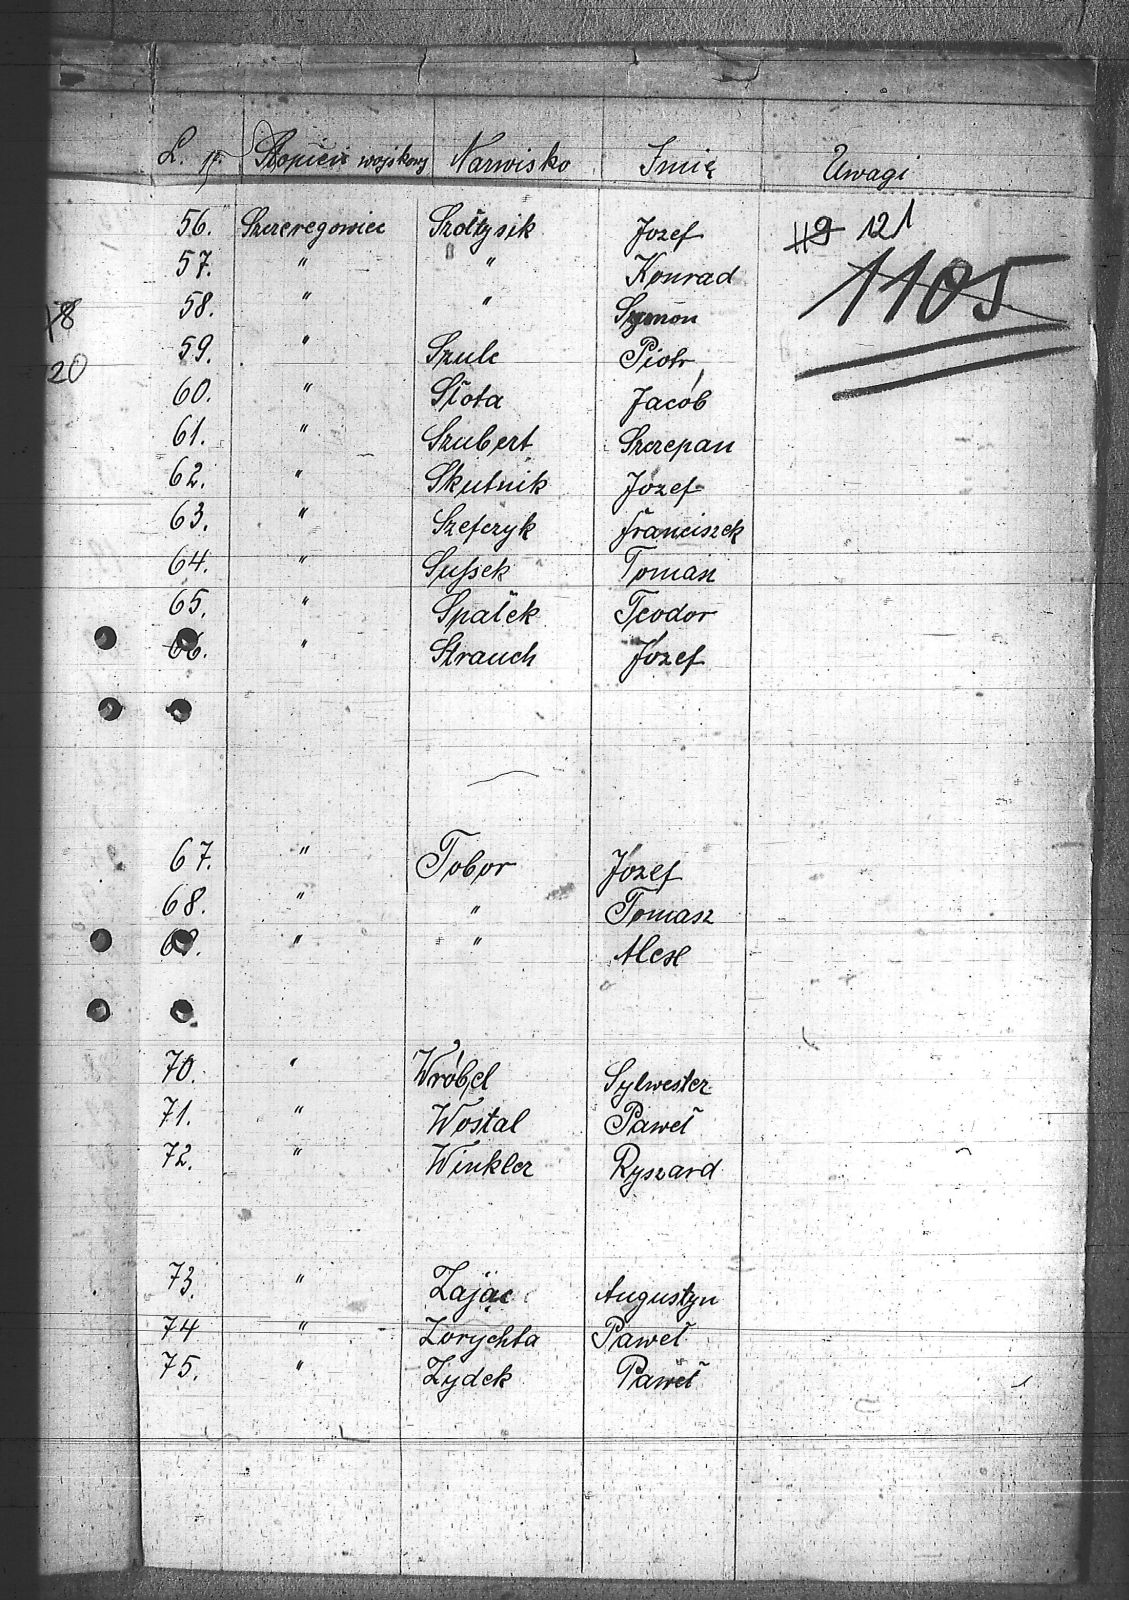 L. p. Stopień wojskowy Nazwisko Imię Uwagi
56. Szeregowiec Szołtysik Józef 119 121
57. " " Konrad 1105
58. " " Szymon
59. " Szulc Piotr
20
60. " Słota Jacób
61. " Szubert Szczepan
62. " Skutnik Józef
63. " Szefczyk Franciszek
64. " Sussek Tomasz
65. " Spałek Teodor
66. " Strauch Józef
67. " Tobor Józef
68. " " Tomasz
69. " "
70. " Wróbel Sylwester
71. " Wostal Paweł
72. " Winkler Ryszard
73. " Zając Augustyn
74 " Zorychta Paweł
75. " Zydek Paweł